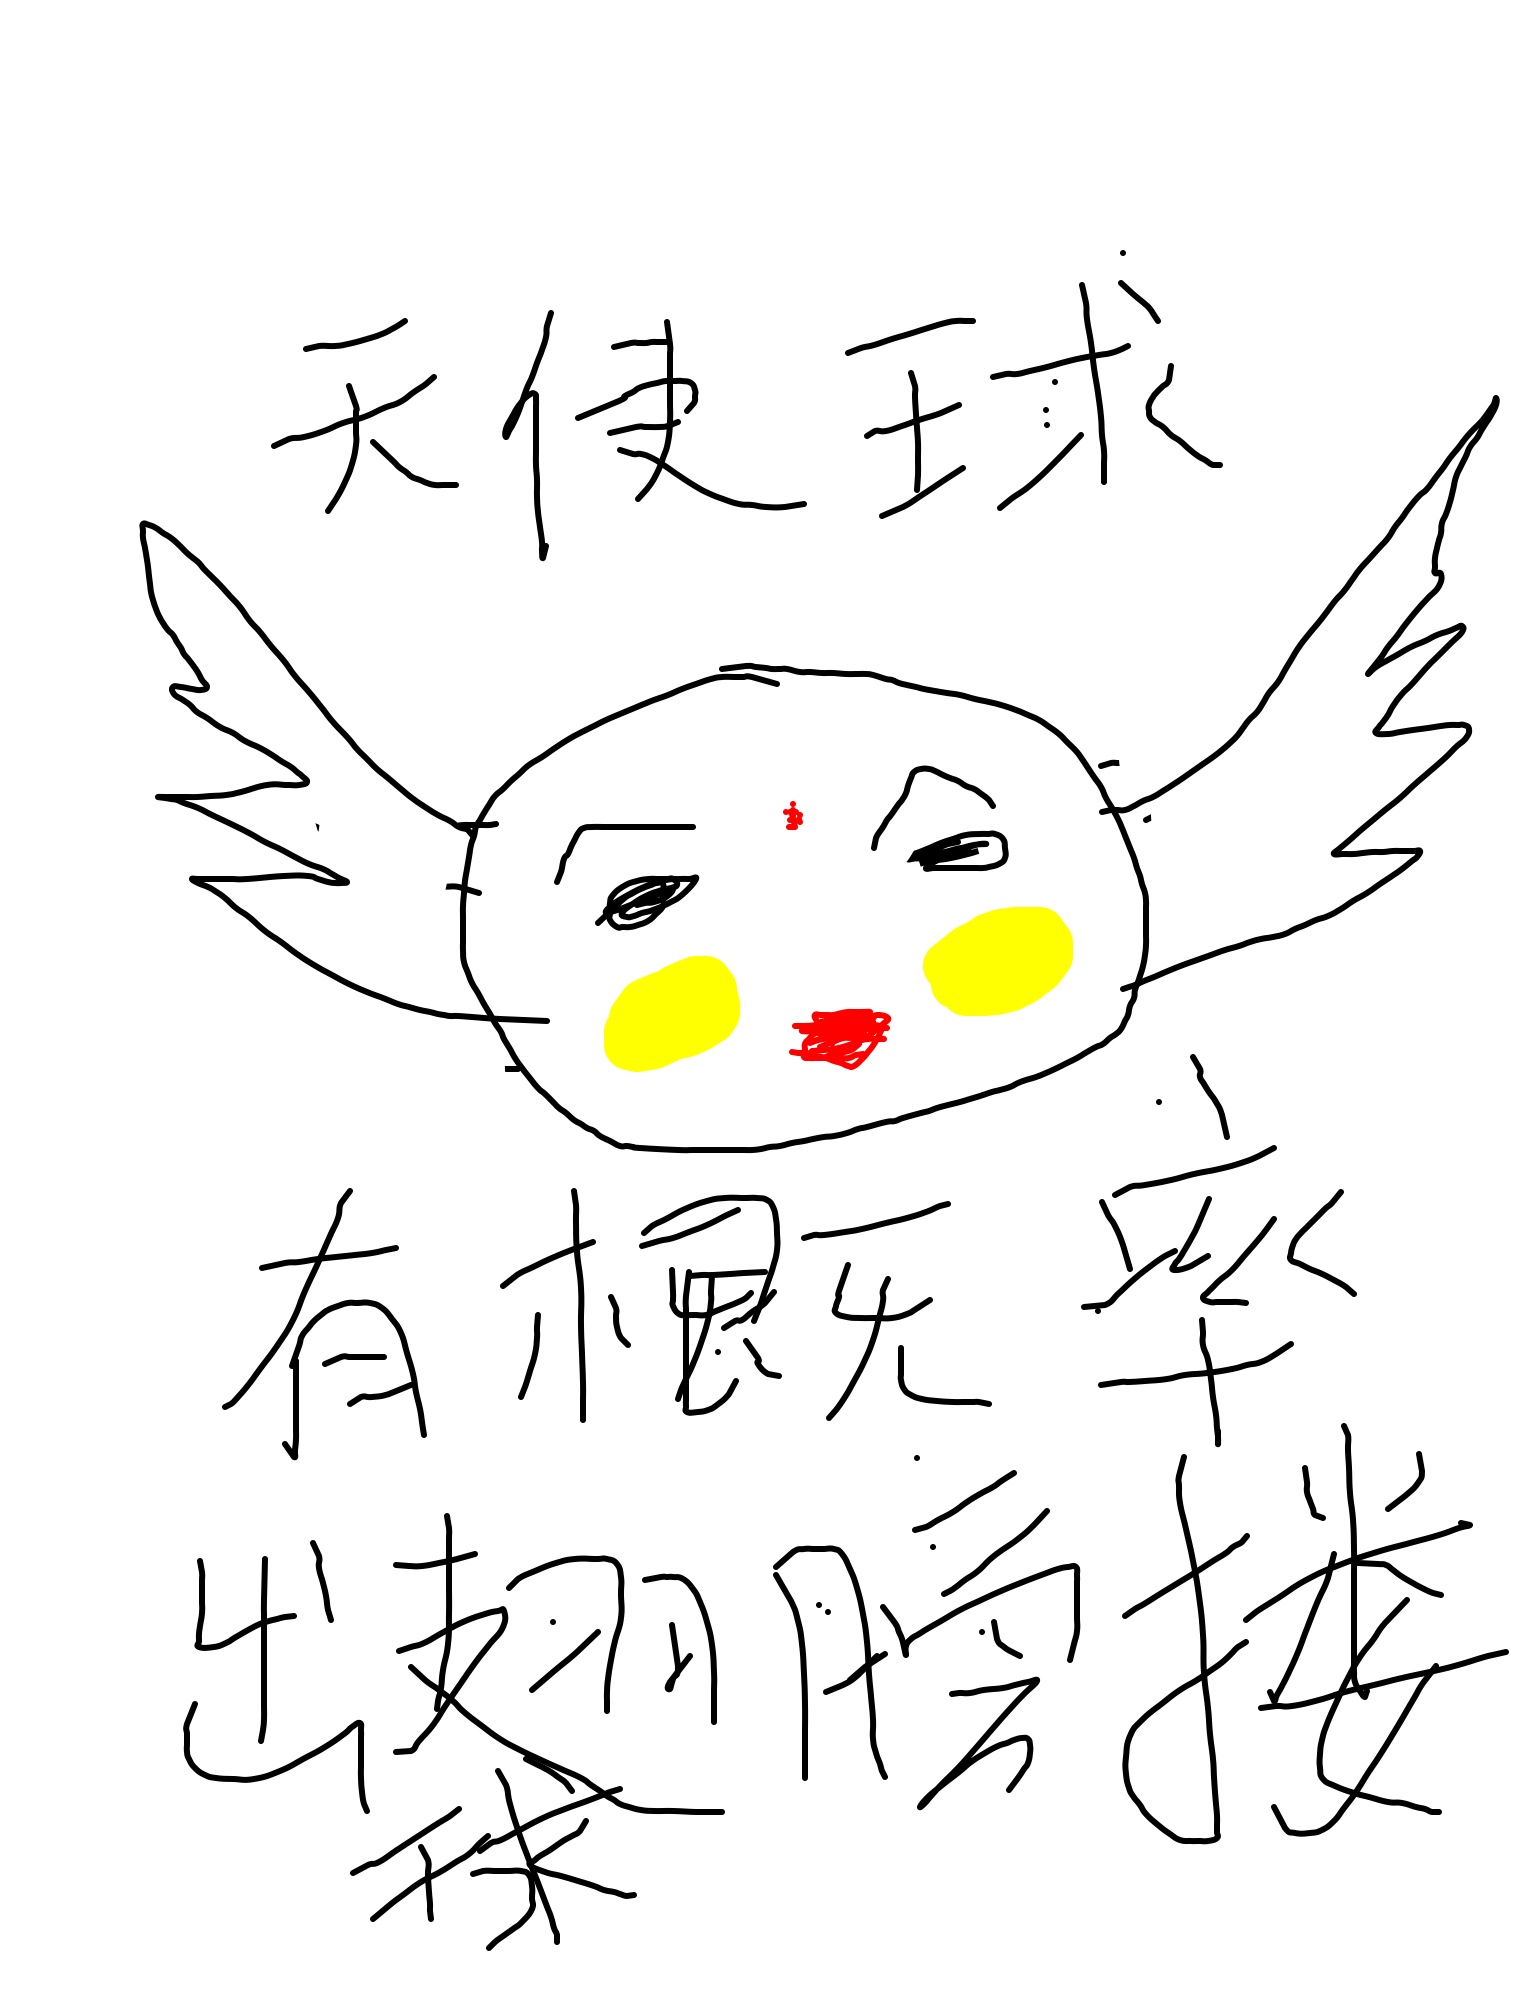 天使球
有概无率
出翅膀接
球